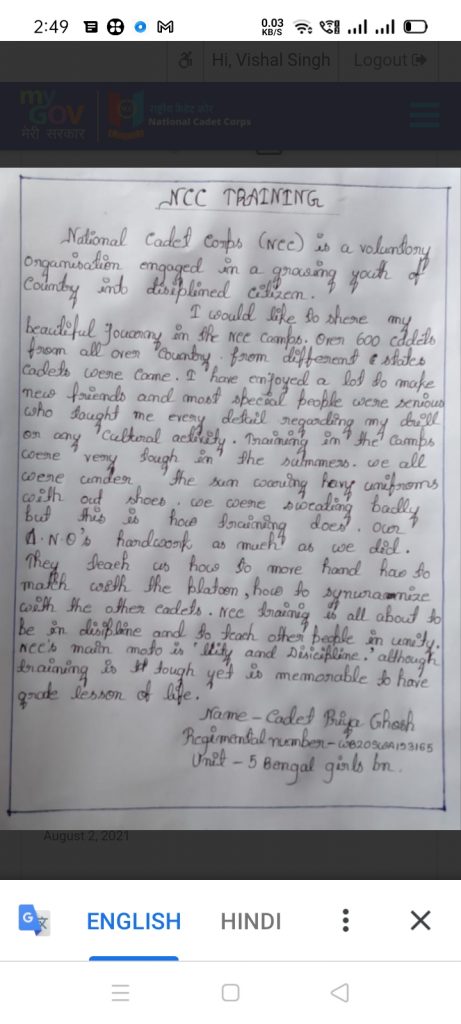 2:49
0.03 KB/S
Hi, Vishal Singh
Logout
my
GOV
मेरी सरकार
राष्ट्रीय कैडेट कोर
National Cadet Corps
NCC TRAINING
National Cadet Corps (NCC) is a voluntory
organisation engaged in a growing youth of
Country into disiplined citizen.
I would like to shere my
beautiful Jouorny in the NCC camps. Over 600 cadets
from all over Country. from different states
cadets were came. I have enjoyed a lot to make
new friends and most special people were senious
who taught me every detail regarding my drill
or any cultural activity. Training in the camps
were very tough in the summers. we all
were under the sun wearing hevy unifroms
with out shoes. we were sweating badly
but this is how training does. our
A.N.O's hardwork as much as we did.
They teach us how to move hand how to
match with the platoon, how to
with the other cadets. NCC trainig is all about to
be in disipline and to teach other people in unity.
NCC's main moto is 'Uity and Disicipline.' although
training is tough yet is memorable to have
grate lesson of life.
Name - Cadet Priya Ghosh
Regimental number -
Unit - 5 Bengal girls bn.
August 2, 2021
ENGLISH
HINDI